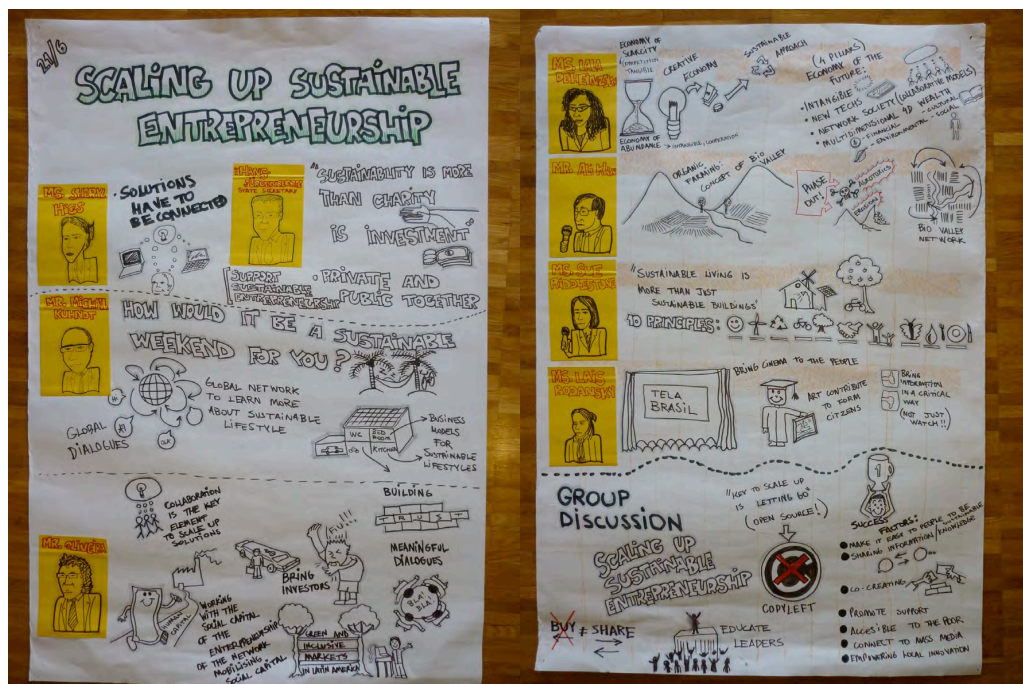 21/6
SCALING UP SUSTAINABLE
ENTREPRENEURSHIP
MS. SHERY
HIES
• SOLUTIONS
HAVE TO
BE CONNECTED
HANS
STATE SECRETARY
"SUSTAINABILITY IS MORE
THAN CHARITY
IS INVESTMENT"
[SUPPORT
SUSTAINABLE
ENTREPRENEURSHIP
• PRIVATE AND
PUBLIC TOGETHER
MR. MICHAEL
KUHNDT
HOW WOULD IT BE A SUSTAINABLE
WEEKEND FOR YOU?
GLOBAL NETWORK
TO LEARN MORE
ABOUT SUSTAINABLE
LIFESTYLE
GLOBAL
DIALOGUES
WC
BED
ROOM
KITCHEN
BUSINESS
MODELS
FOR
SUSTAINABLE
LIFESTYLES
COLLABORATION
IS THE KEY
ELEMENT
TO SCALE UP
SOLUTIONS
MR. OLIVEIRA
SOCIAL
CAPITAL
WORKING
WITH THE
SOCIAL CAPITAL
OF THE
ENTERPRENEURSHIP
OF THE NETWORK
MOBILISING
SOCIAL CAPITAL
BRING
INVESTORS
FIU!!!
BUILDING
TRUST
MEANINGFUL
DIALOGUES
BLA!
BLA!
GREEN AND
INCLUSIVE
MARKETS
IN LATIN AMERICA
MS. LALA
DEHEINZELIN
ECONOMY OF
SCARCITY
COMPETITION
TANGIBLE
ECONOMY OF
ABUNDANCE
INTANGIBLE, COOPERATION
CREATIVE
ECONOMY
SUSTAINABLE
APPROACH
(4 PILLARS)
ECONOMY OF THE
FUTURE:
• INTANGIBLE
• NEW TECHS
• NETWORK SOCIETY (COLLABORATIVE MODELS)
• MULTIDIMENSIONAL 4D WEALTH
- FINANCIAL
- ENVIRONMENTAL
- CULTURAL
- SOCIAL
MR. ALI
ORGANIC
FARMING:
CONCEPT OF BIO
VALLEY
PHASE
OUT!
AGROTOXICS
EROSION
BIO VALLEY
NETWORK
MS. SUE
RIDDLESTONE
"SUSTAINABLE LIVING IS
MORE THAN JUST
SUSTAINABLE BUILDINGS"
10 PRINCIPLES:
MS. LAIS
BODANSKY
BRING CINEMA TO THE PEOPLE
TELA
BRASIL
ART CONTRIBUTE
TO FORM
CITIZENS
BRING
INFORMATION
IN A CRITICAL
WAY
(NOT JUST
WATCH!!)
GROUP
DISCUSSION
SCALING UP
SUSTAINABLE
ENTREPRENEURSHIP
"KEY TO SCALE UP
IS LETTING GO"
(OPEN SOURCE!)
COPYLEFT
BUY ≠ SHARE
EDUCATE
LEADERS
1
SUCCESS
FACTORS:
• MAKE IT EASY TO PEOPLE TO BE
SUSTAINABLE
• SHARING INFORMATION/KNOWLEDGE
• CO-CREATING
• PROMOTE SUPPORT
• ACCESIBLE TO THE POOR
• CONNECT TO MASS MEDIA
• EMPOWERING LOCAL INNOVATION